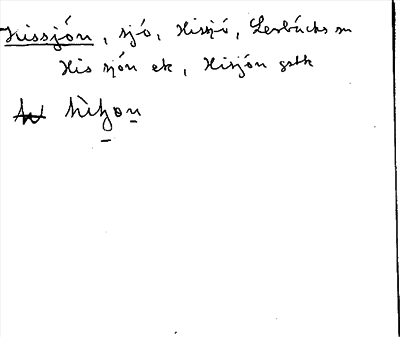 Hissjön, sjö, Hissjö, Lerbäcks sn
His sjön ek, Hisjön gstk
hiʃon